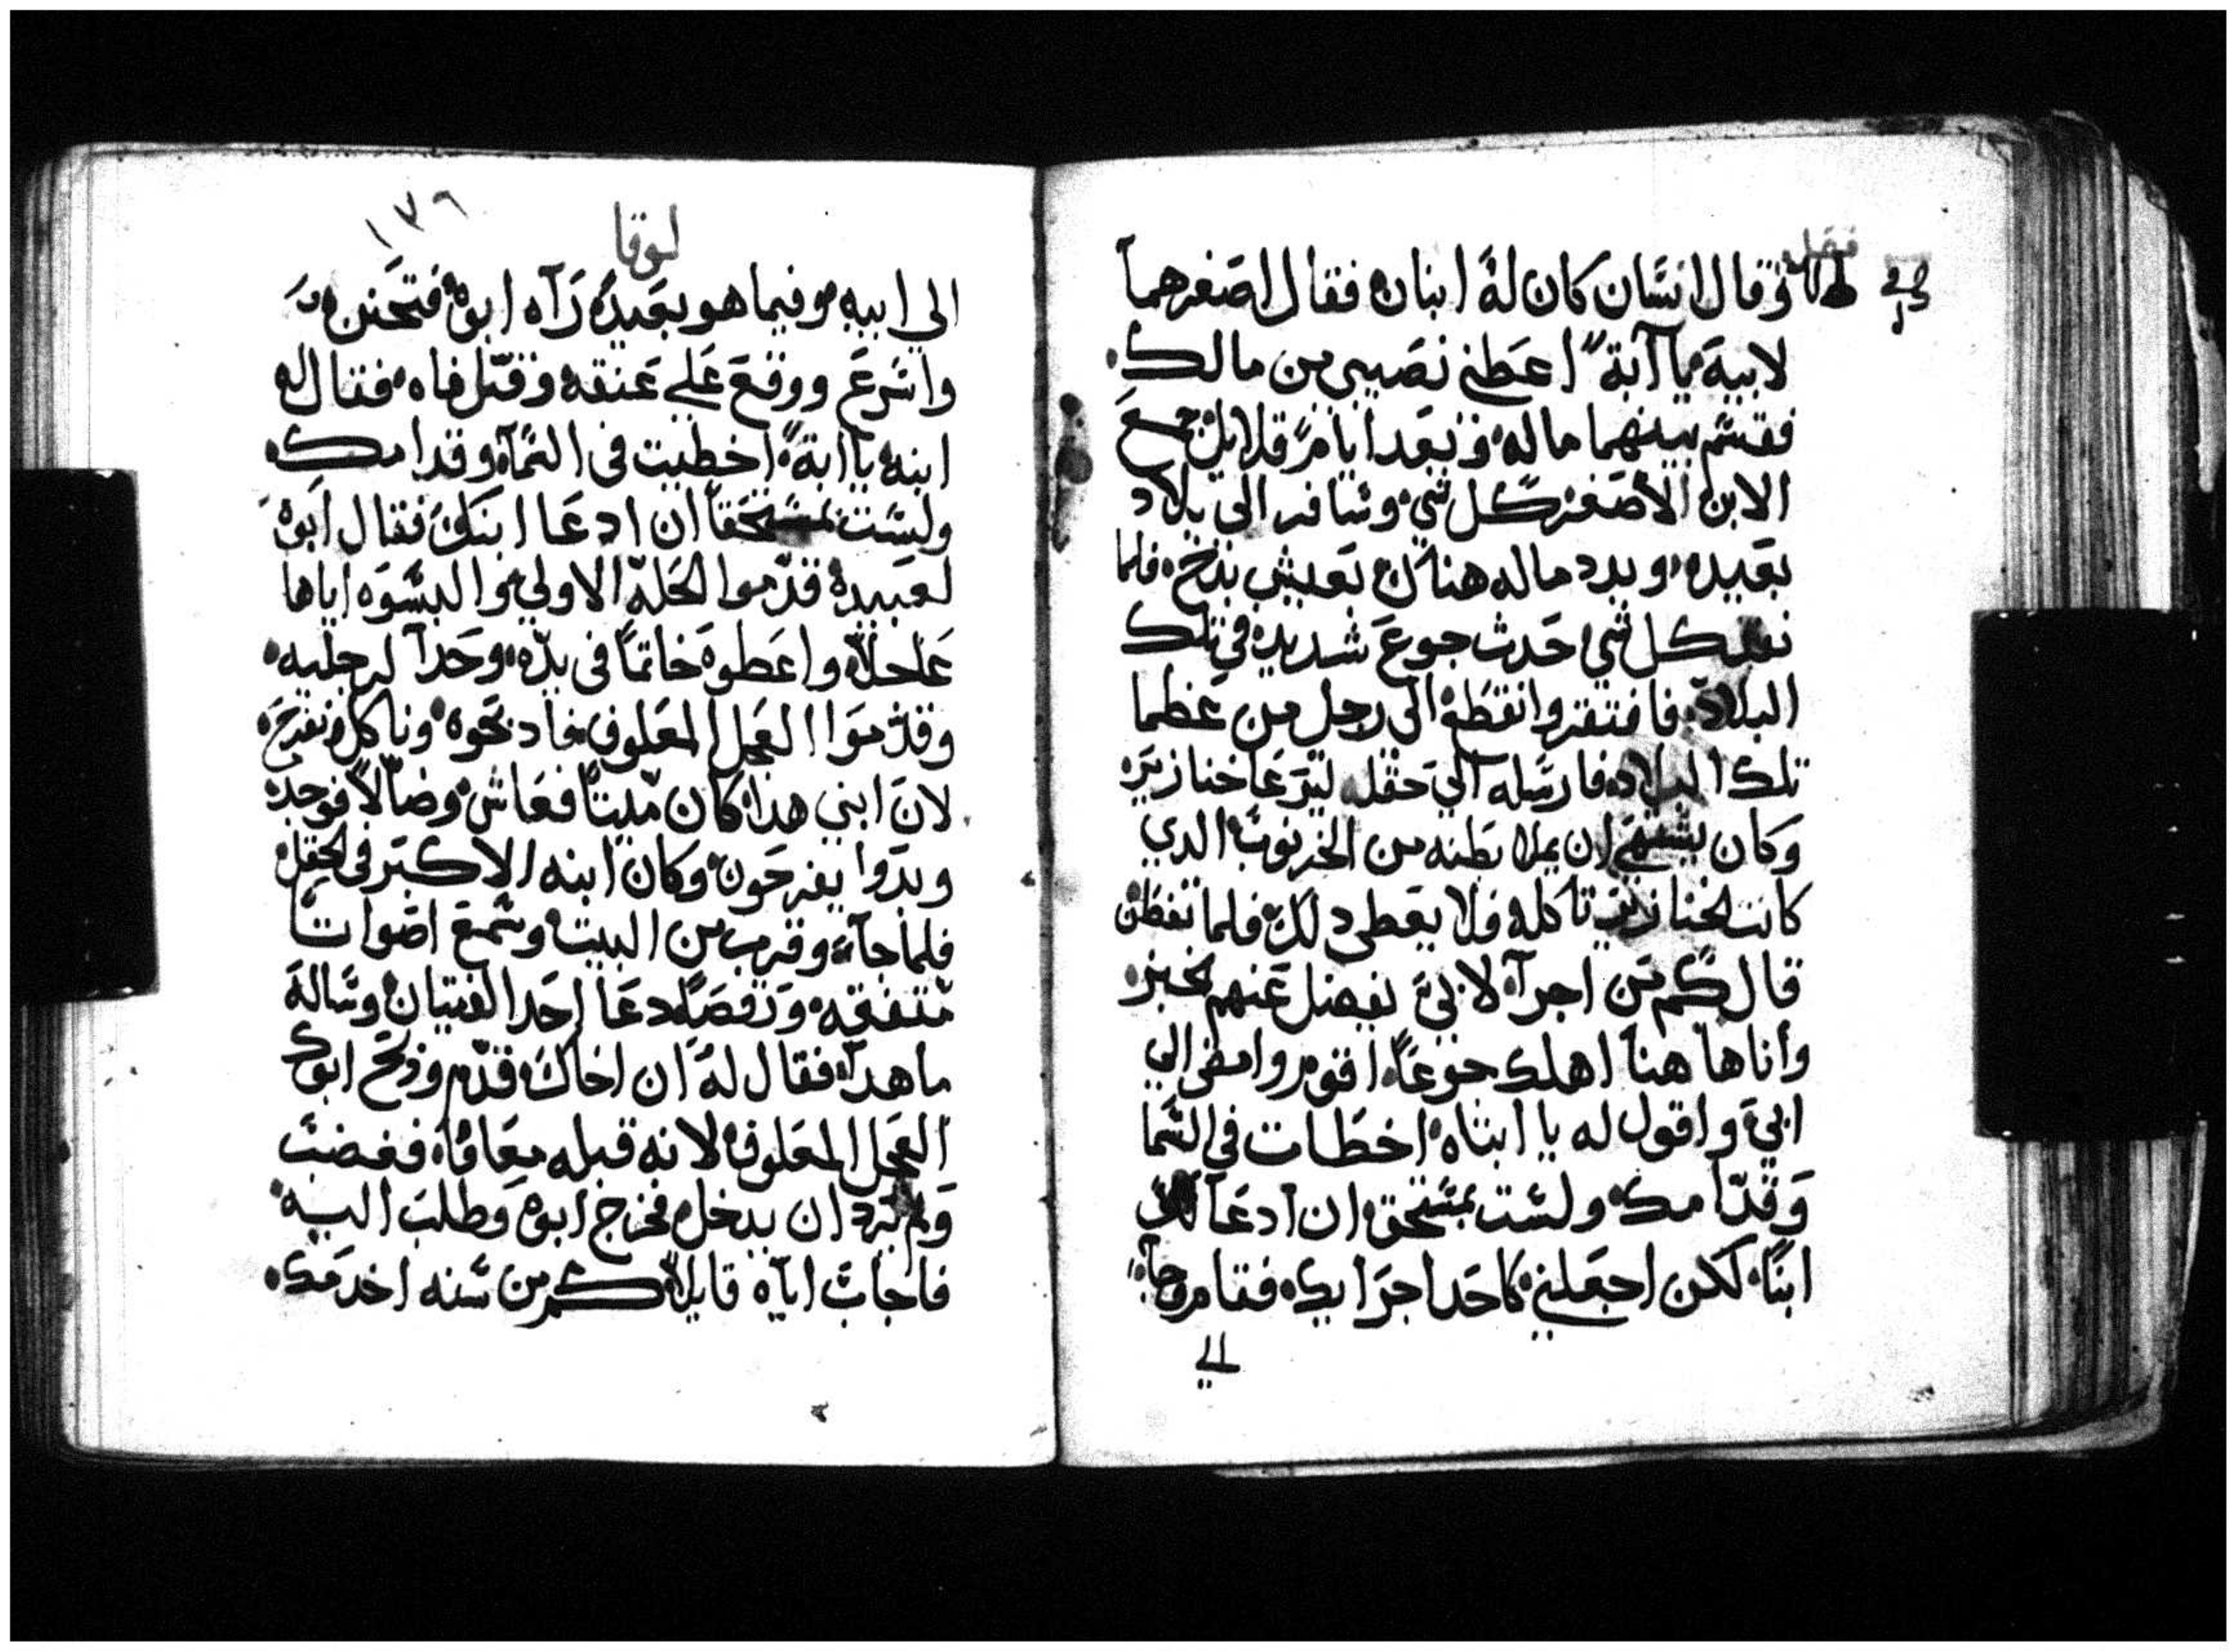 فصل
وقال انسان كان له ابنان فقال اصغرهما
لابيه يا آبة اعطني نصيبي من مالك
فقسم بينهما ماله وبعد ايام قلايل جمع
الابن الأصغر كل شي وسافر الى بلاد
بعيده وبدد ماله هناك بعيش بذخ فلما
نفد كل شي حدث جوع شديد في تلك
البلاد فافتقر وانقطع الى رجل من عظما
تلك البلاد فارسله الي حقله ليرعا خنازيره
وكان يشتهي ان يملا بطنه من الخرنوب الدي
كانت الخنازير تاكله فلا يعطى دلك فلما تفطن
قال كم من اجرآ لابي يفضل عنهم الخبز
وأنا هاهنا اهلك جوعًا اقوم وامضي الي
ابي واقول له يا ابتاه اخطات في السما
وقدامك ولست بمستحق ان ادعا لك
ابنًا لكن اجعلني كاحد اجرايك فقام وجآ
الي
١٣٦
لوقا
الي ابيه وفيما هو بعيد رآه ابوه فتحنن
واسرع ووقع علي عنقه وقبّل فاه فقال له
ابنه يا ابة اخطيت في السمآ وقدامك
ولست مستحقاً ان ادعا ابنك فقال ابوه
لعبيده قدّموا الحلة الاولي والبسوه اياها
عاجلاً واعطوه خاتمًا في يده وحدآ لرجليه
وقدموا العجل المعلوف فادبحوه وناكل ونفرح
لان ابني هدا كان ميتًا فعاش وضالاً فوجد
وبدوا يفرحون وكان ابنه الاكبر في الحقل
فلما جآء وقرب من البيت وسمع اصواتًا
متفقه ورقصًا دعا احد الفتيان وساله
ما هدا فقال له ان اخاك قدم ودبح ابوك
العجل المعلوف لانه قبله معافاه فغضب
ولم يرد ان يدخل فخرج ابوه وطلب اليه
فاجاب اباه قايلاً كم من سنه اخدمك